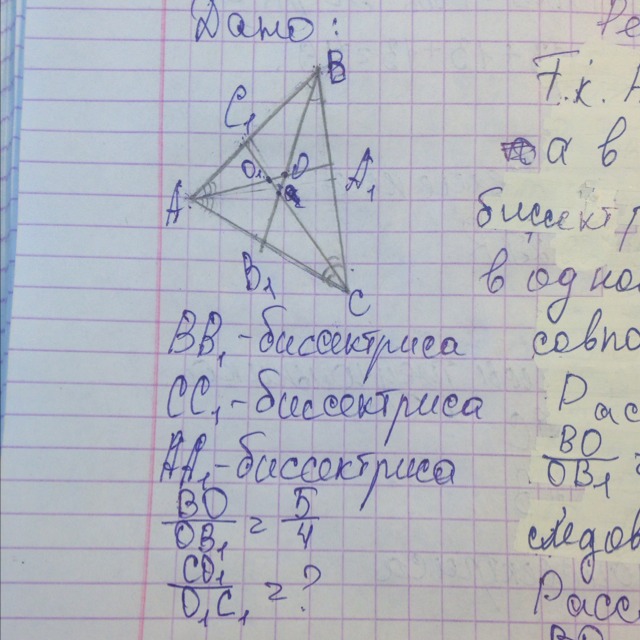 Дано:
B
C₁
O₁ O
A₁
A
B₁
C
BB₁ - биссектриса
CC₁ - биссектриса
AA₁ - биссектриса
BO/OB₁ = 5/4
CO₁/O₁C₁ = ?
Ре
Т.к. А
а в
биссектр
в одно
совпа
Рас
BO/OB₁
следов
Расс